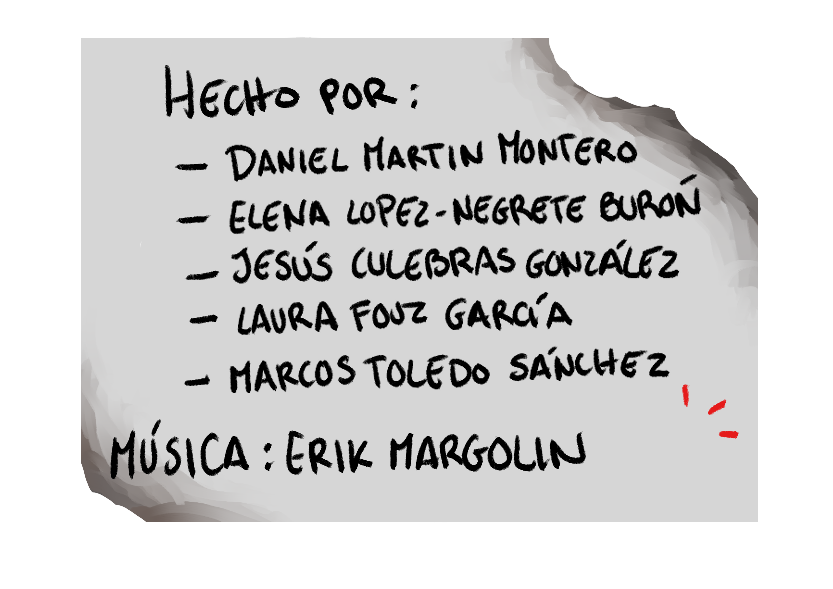 HECHO POR:
- DANIEL MARTIN MONTERO
- ELENA LOPEZ-NEGRETE BUROŃ
- JESÚS CULEBRAS GONZÁLEZ
- LAURA FOUZ GARCÍA
- MARCOS TOLEDO SÁNCHEZ
MÚSICA: ERIK MARGOLIN